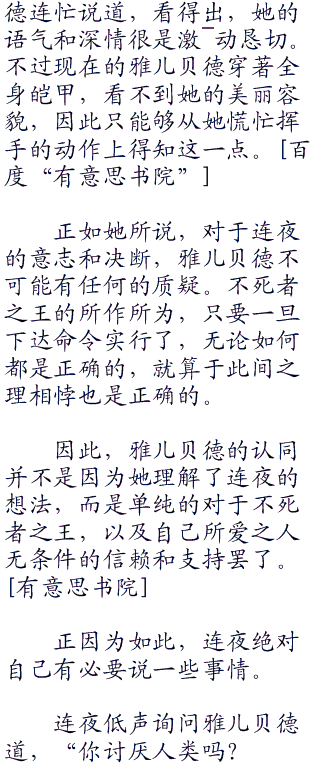 德连忙说道，看得出，她的
语气和深情很是激¯动恳切。
不过现在的雅儿贝德穿著全
身皑甲，看不到她的美丽容
貌，因此只能够从她慌忙挥
手的动作上得知这一点。[百
度“有意思书院”]
正如她所说，对于连夜
的意志和决断，雅儿贝德不
可能有任何的质疑。不死者
之王的所作所为，只要一旦
下达命令实行了，无论如何
都是正确的，就算于此间之
理相悖也是正确的。
因此，雅儿贝德的认同
并不是因为她理解了连夜的
想法，而是单纯的对于不死
者之王，以及自己所爱之人
无条件的信赖和支持罢了。
[有意思书院]
正因为如此，连夜绝对
自己有必要说一些事情。
连夜低声询问雅儿贝德
道，“你讨厌人类吗？